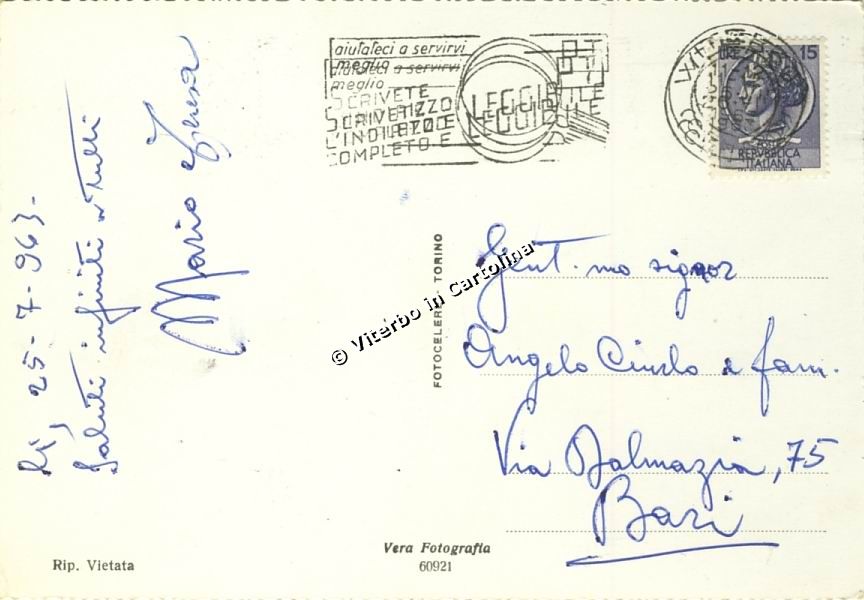 aiutateci a servirvi
meglio
aiutateci a servirvi
meglio
SCRIVETE
SCRIVETE
L'INDIRIZZO
L'INDIRIZZO
COMPLETO E
COMPLETO E
LEGGIBILE
LEGGIBILE
VITERBO
LIRE 15
REPVBBLICA
ITALIANA
lì, 25-7-963-
Saluti infiniti a tutti
Mario Teresa
© Viterbo in Cartolina
FOTOCELERE - TORINO
Gent.mo signor
Angelo Ciurlo e fam.
Via Dalmazia, 75
Bari
Vera Fotografia
60921
Rip. Vietata